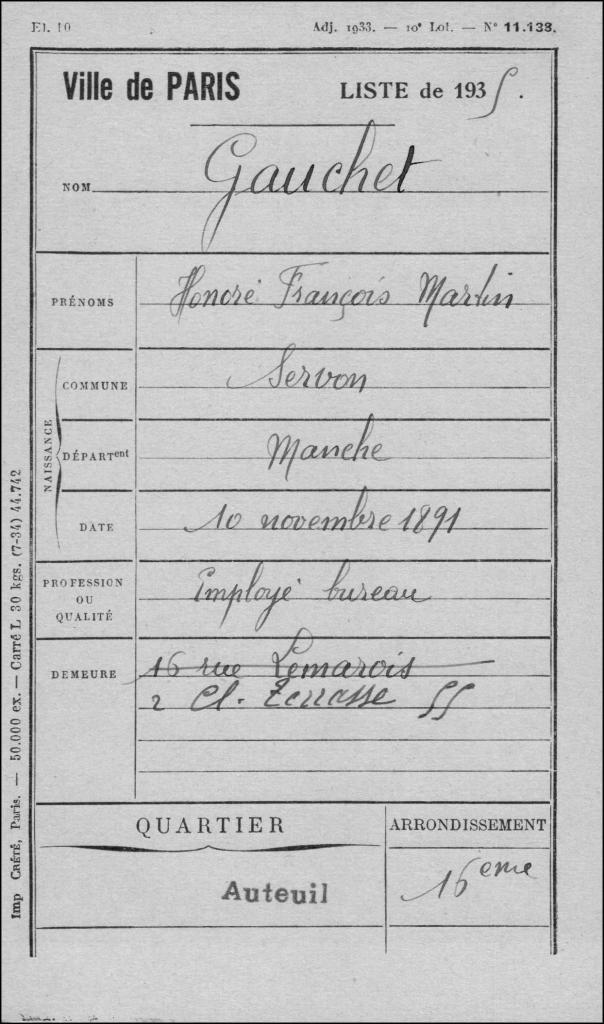 El. 10 Adj. 1933. — 10e Lot. — N° 11.133.
Ville de PARIS LISTE de 1935.
NOM Gauchet
PRÉNOMS Honoré François Martin
NAISSANCE
COMMUNE Servon
DÉPARTent Manche
DATE 10 novembre 1891
PROFESSION OU QUALITÉ Employé bureau
DEMEURE 16 rue Lemarois
2 Cl. Terrasse 55
QUARTIER ARRONDISSEMENT
Auteuil 16eme
Imp CRÉTÉ, Paris. — 50.000 ex. — Carré L 30 kgs. (7-34) 44.742